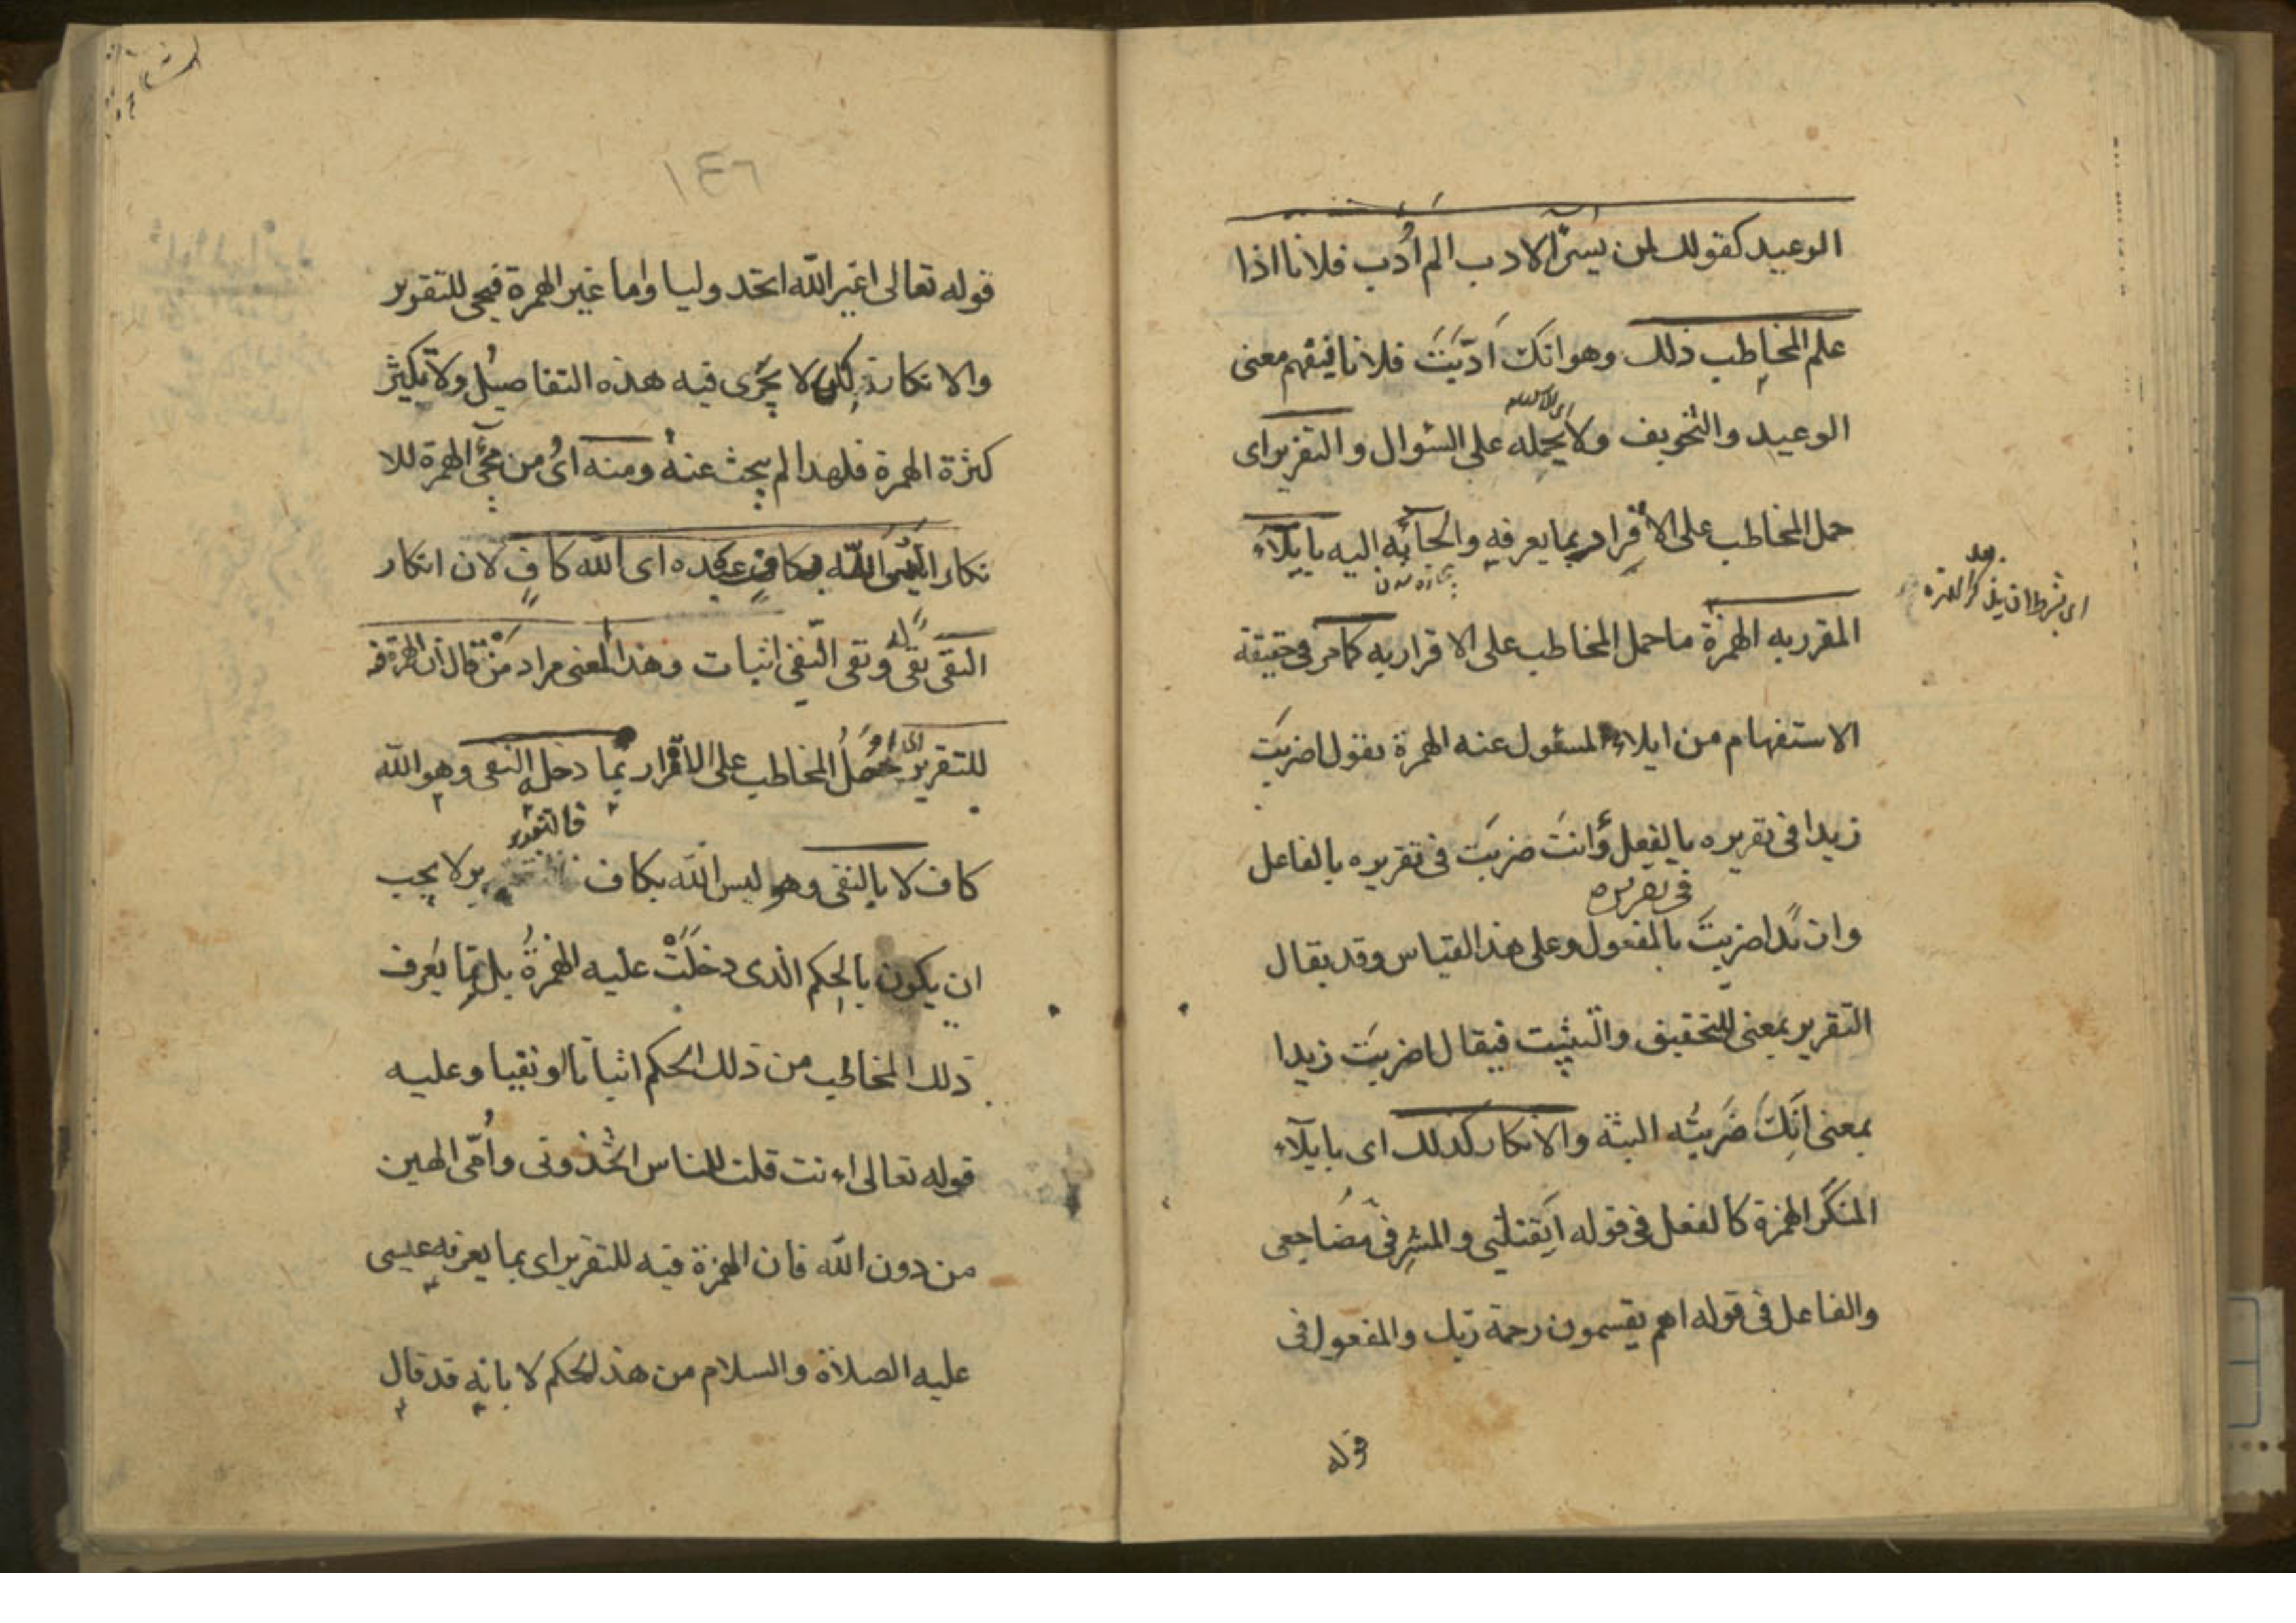 الوعيد كقولك لمن يسئ الادب الم أُدّب فلانا اذا
علم المخاطب ذلك وهو انك اَدّبْتَ فلانا فيفهم معنى
الوعيد والتخويف ولا يحمله على السؤال والتقرير اى
حمل المخاطب على الاقرار بما يعرفه والجائه اليه بايلاء
المقرر به الهمزة ما حمل المخاطب على الاقرار به كما مر فى حقيقة
الاستفهام من ايلاء المسؤل عنه الهمزة تقول اضربتَ
زيدا فى تقريره بالفعل وأانتَ ضربتَ فى تقريره بالفاعل
فى تقريره
ضربتَ بالمفعول وعلى هذا القياس وقد يقال
التقرير بمعنى التحقيق والتثبيت فيقال اضربتَ زيدا
بمعنى اَنّكَ ضَربتُه البتة والانكار كذلك اى بايلاء
المنكَر الهمزة كالفعل فى قوله اَيَقتلنى والمشرفىّ مُضاجعى
والفاعل فى قوله اهم يقسمون رحمة ربك والمفعول فى
قوله
اى بشرط ان يذكر الهمزة
بعد
١٤٦
قوله تعالى اغير الله اتخذ وليا واما غير الهمزة فيجئ للتقرير
والانكار لكن لا يجرى فيه هذه التفاصيل ولا يكثر
كثرة الهمزة فلهذا لم يبحث عنه ومنه اى من مجئ الهمزة للا
نكار اليس الله بكاف عبده اى الله كافٍ لان انكار
النفى نفى له ونفى النفى اثبات وهذا المعنى مراد مَنْ قال ان الهمزة فيه
للتقرير اى حملُ المخاطب على الاقرار بما دخله النفى وهو الله
كاف لا بالنفى وهو ليس الله بكاف فالتقرير لا يجب
ان يكون بالحكم الذى دخَلَتْ عليه الهمزةُ بل بما يَعرف
ذلك المخاطب من ذلك الحكم اثباتا او نفيا وعليه
قوله تعالى ءانت قلت للناس اتخذونى واُمّى الهين
من دون الله فان الهمزة فيه للتقرير اى بما يعرفه عيسى
عليه الصلاة والسلام من هذا الحكم لا بانه قد قال